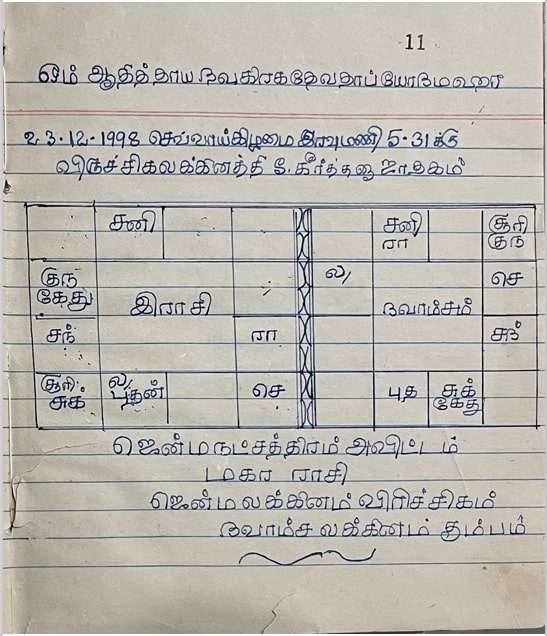 11
ஓம் ஆதித்தாய நவகிரகதேவதாப்யோநமஹா
23-12-1998 செவ்வாய்கிழமை இரவுமணி 5-31க்கு
விருச்சிகலக்கினத்தி S. கீர்த்தனா ஜாதகம்
சனி சனி சூரி
ரா குரு
குரு ல/ செ
கேது
இராசி நவாம்சம்
சந் ரா சந்
சூரி ல/ செ புத சுக்
சுக புதன் கேது
ஜென்மநட்சத்திரம் அவிட்டம்
மகர ராசி
ஜென்மலக்கினம் விரிச்சிகம்
நவாம்ச லக்கினம் கும்பம்